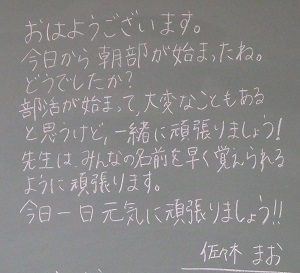 おはようございます。
今日から朝部が始まったね。
どうでしたか?
部活が始まって、大変なこともある
と思うけど、一緒に頑張りましょう!
先生は、みんなの名前を早く覚えられる
ように頑張ります。
今日一日元気に頑張りましょう!!
佐々木 まお